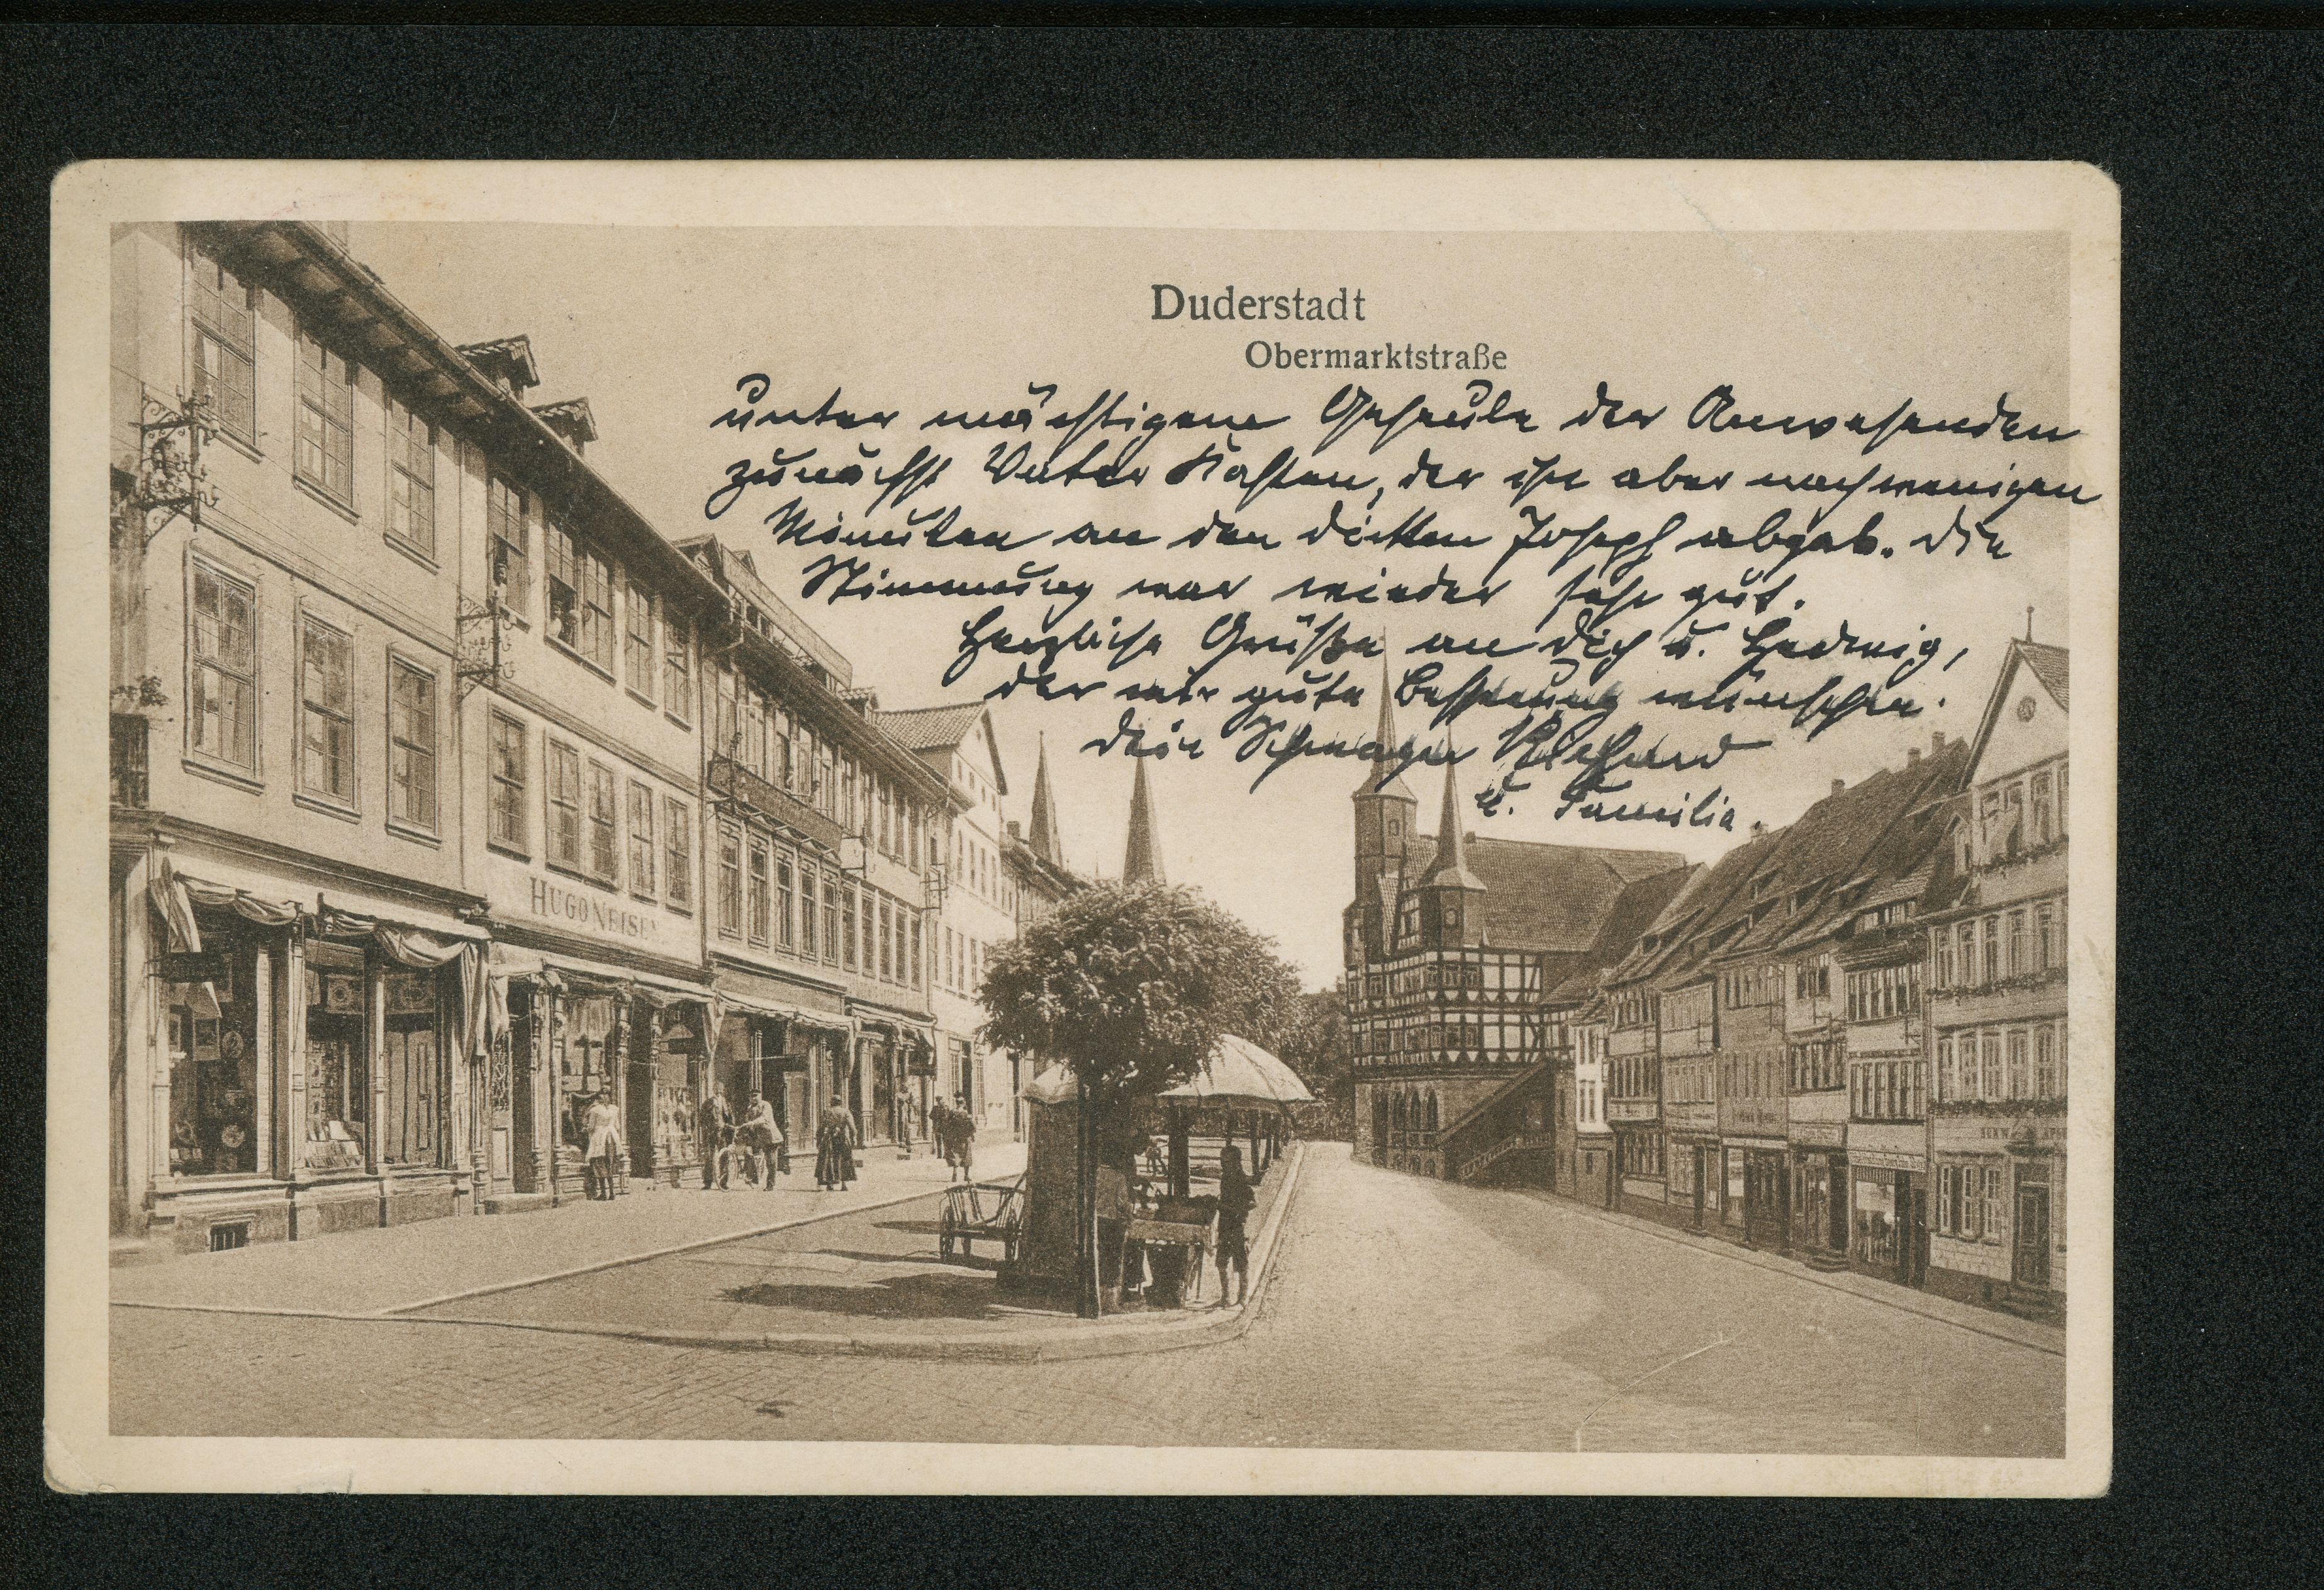 Duderstadt
Obermarktstraße
unter mächtigem Geheule der Anwesenden
zunächst Vater Kasten, der ihn aber nach wenigen
Minuten an den dicken Joseph abgab. Die
Stimmung war wieder sehr gut.
Herzliche Grüße an dich u. Hedwig,
der wir gute Besserung wünschen.
Dein Schwager Richard
u. Familie.
HUGO NEISEN